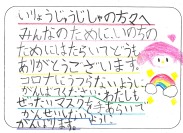 いりょうじゅうじしゃの方々へ
みんなのために、いのちの
ためにはたらいてどうも
ありがとうございます。
コロナにうつらないように
がんばってください。わたしも
ぜったいマスクをするくらい
かんせんしないように
がんばります。